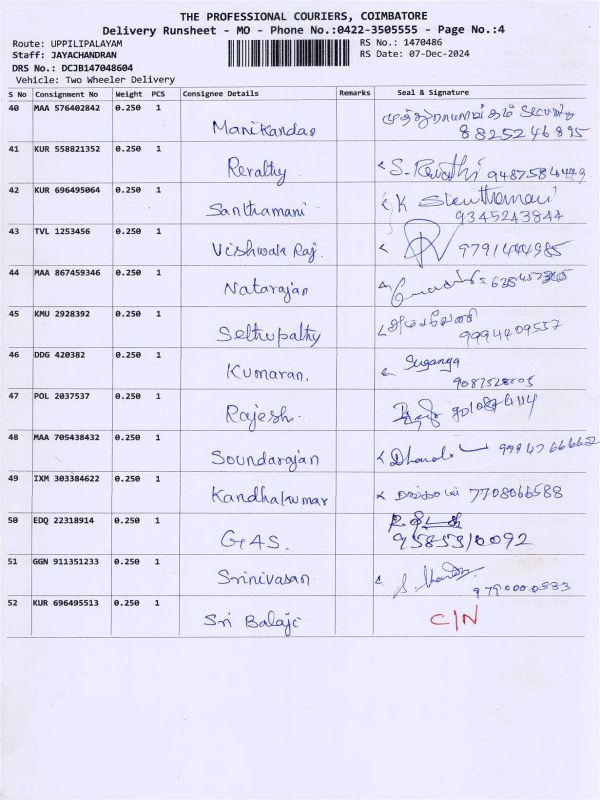 THE PROFESSIONAL COURIERS, COIMBATORE
Delivery Runsheet - MO - Phone No.:0422-3505555 - Page No.:4
Route: UPPILIPALAYAM RS No.: 1470486
Staff: JAYACHANDRAN RS Date: 07-Dec-2024
DRS No.: DCJB147048604
Vehicle: Two Wheeler Delivery
S No Consignment No Weight PCS Consignee Details Remarks Seal & Signature
40 MAA 576402842 0.250 1 Manikandan
8825246895
41 KUR 558821352 0.250 1 Revathy S. Revathi
42 KUR 696495064 0.250 1 Santhamani K
9345243844
43 TVL 1253456 0.250 1 Vishwak Raj. 9791444985
44 MAA 867459346 0.250 1 Natarajan
45 KMU 2928392 0.250 1 Sethupathy
9994409557
46 DDG 420382 0.250 1 Kumaran. Suganya
47 POL 2037537 0.250 1 Rajesh.
48 MAA 705438432 0.250 1 Soundarajan
49 IXM 303384622 0.250 1 Kandhakumar 7708066588
50 EDQ 22318914 0.250 1 GAS.
9585310092
51 GGN 911351233 0.250 1 Srinivasan
52 KUR 696495513 0.250 1 Sri Balaji C/N